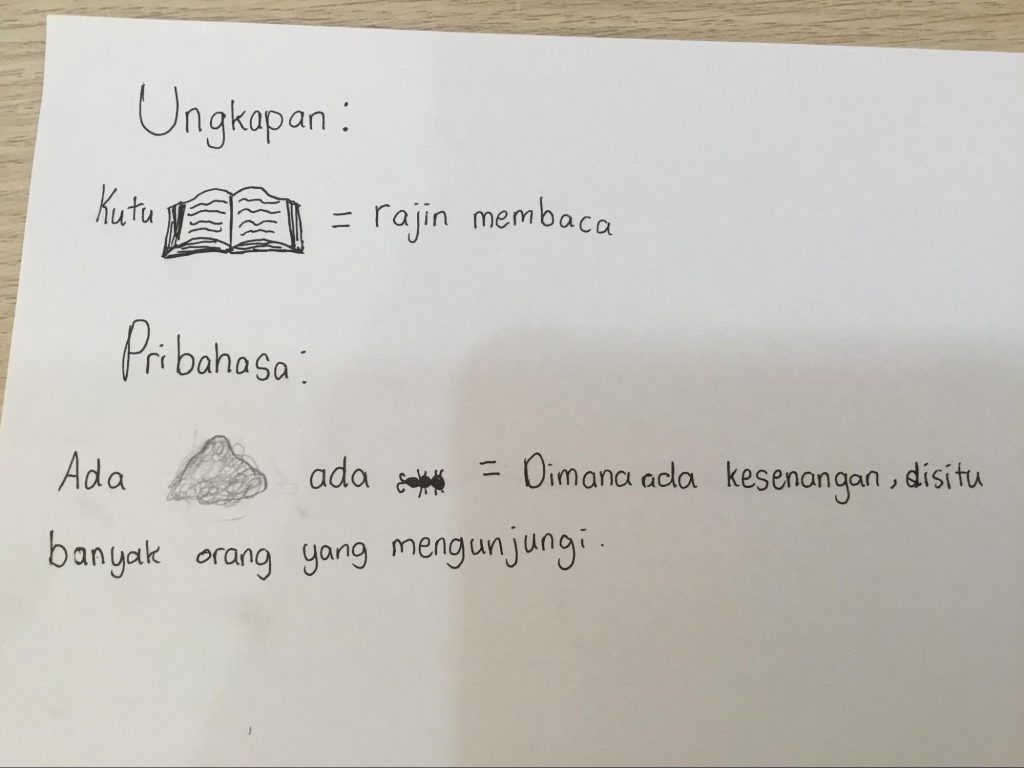 Ungkapan:
Kutu = rajin membaca
Pribahasa:
Ada ada = Dimana ada kesenangan, disitu
banyak orang yang mengunjungi.